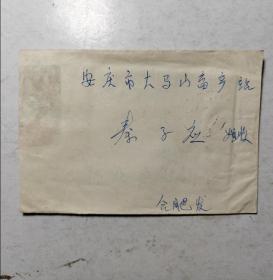 安庆市大马山畜牧站
秦子应 收
合肥发